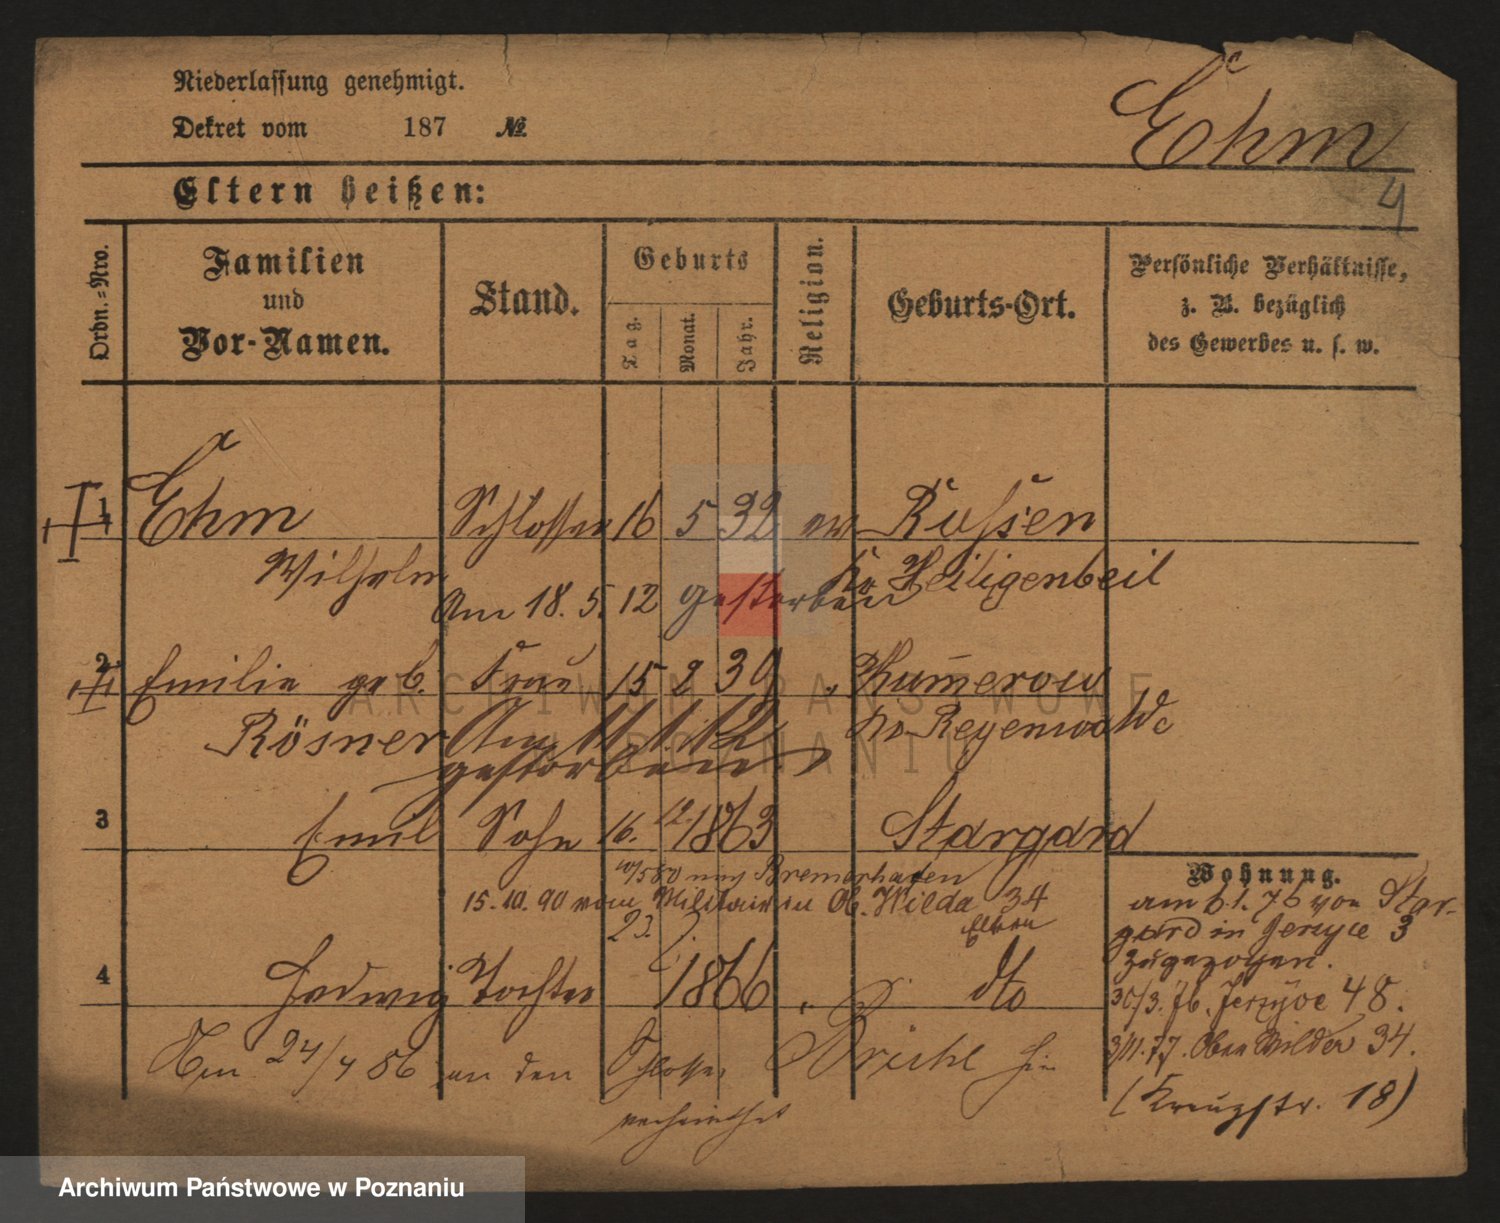 Niederlassung genehmigt.
Dekret vom 187 №.
Ehm
4
Eltern heißen:
Ordn.-Nro.
Familien
und
Vor-Namen.
Stand.
Geburts
Tag.
Monat.
Jahr.
Religion.
Geburts-Ort.
Persönliche Verhältnisse,
z. B. bezüglich
des Gewerbes u. s. w.
1 Ehm Schlosser 16 5 32 ev Russen
Wilhelm Kr. Heiligenbeil
Am 18. 5. 12 gestorben
2. Emilie geb. Frau 15 2 39 " Kumerow
Rösner Kr Regenwalde
gestorben
3 Emil Sohn 16. 12. 1863 Stargard
Bremerhafen
15. 10. 90 vom Militair in Ob. Wilda 34
Eltern
23.
4 Hedwig Tochter 1866 " dto
Am 24/4 86 an den Schlosser hier
verheirathet
Wohnung.
am 6.1.76 von Star-
gard in Jersyce 3
zugezogen.
30/3. 76. Jersyce 48.
3/11. 77. Ober Wilda 34.
(Kreuzstr. 18)
ARCHIWUM PAŃSTWOWE
W POZNANIU
Archiwum Państwowe w Poznaniu